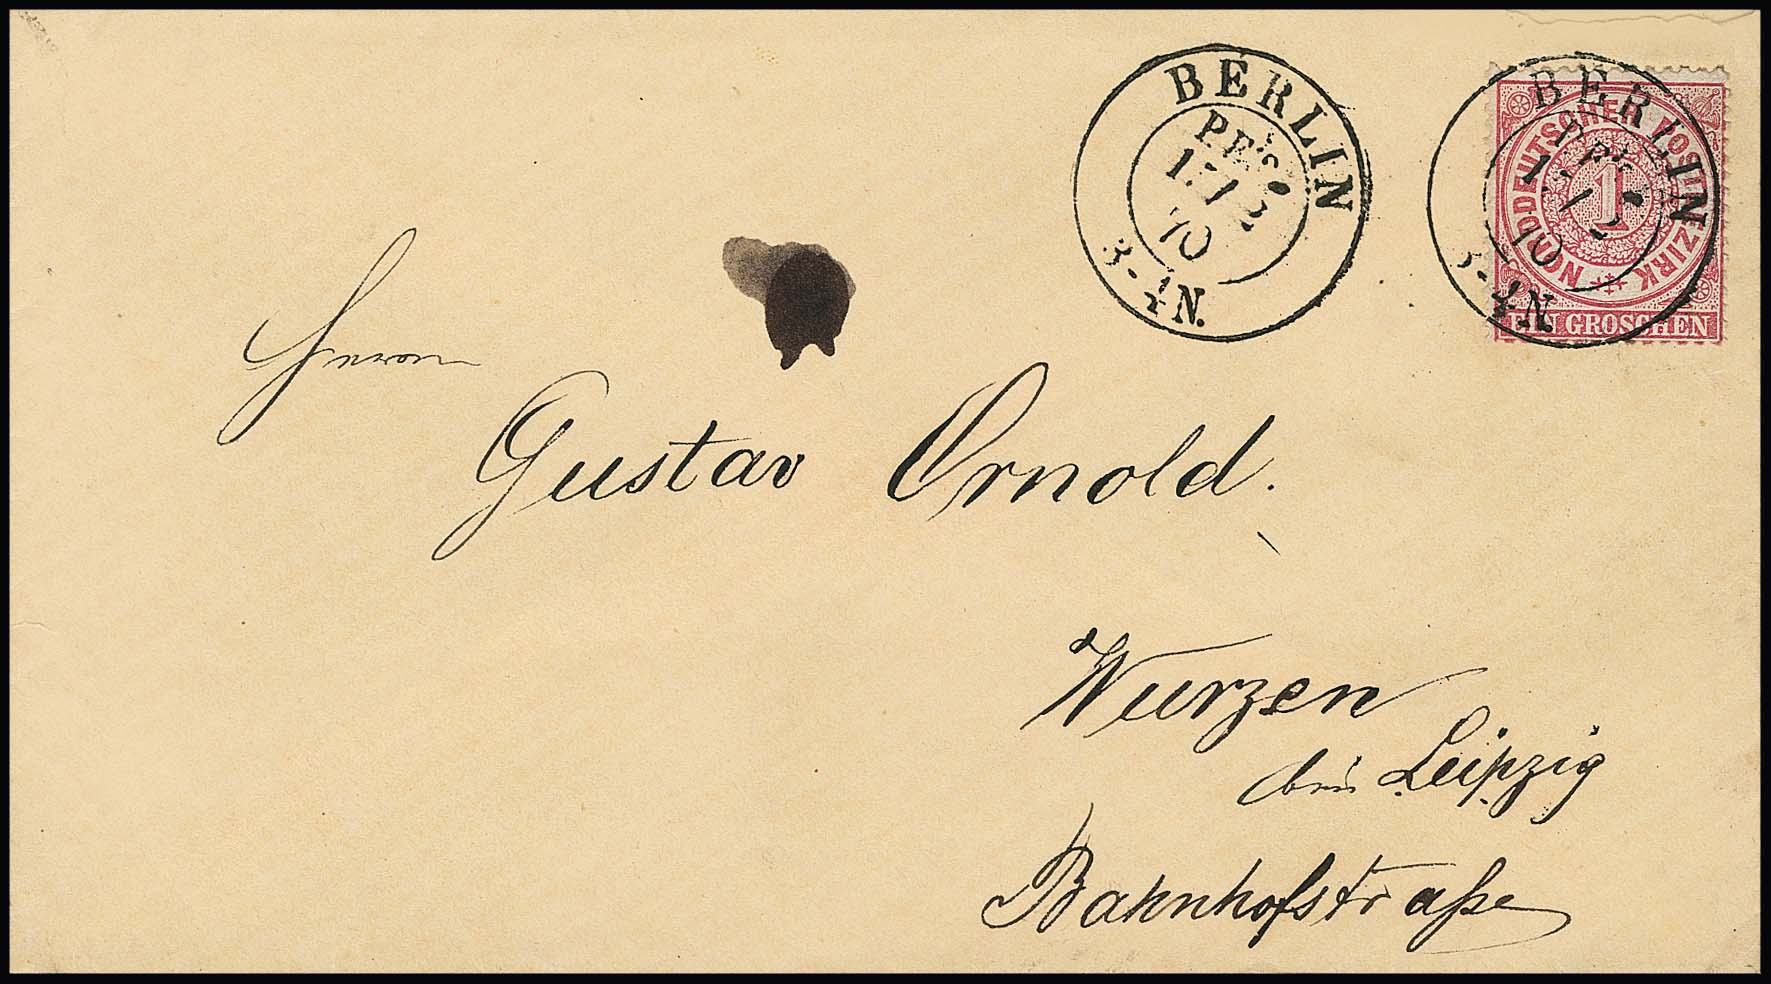 BERLIN
P.E.
70
3-4N.
BERLIN
70
4N
NORDDEUTSCHER POSTBEZIRK
1
EIN GROSCHEN
Herrn
Gustav Arnold.
Wurzen
bei Leipzig
Bahnhofstraße